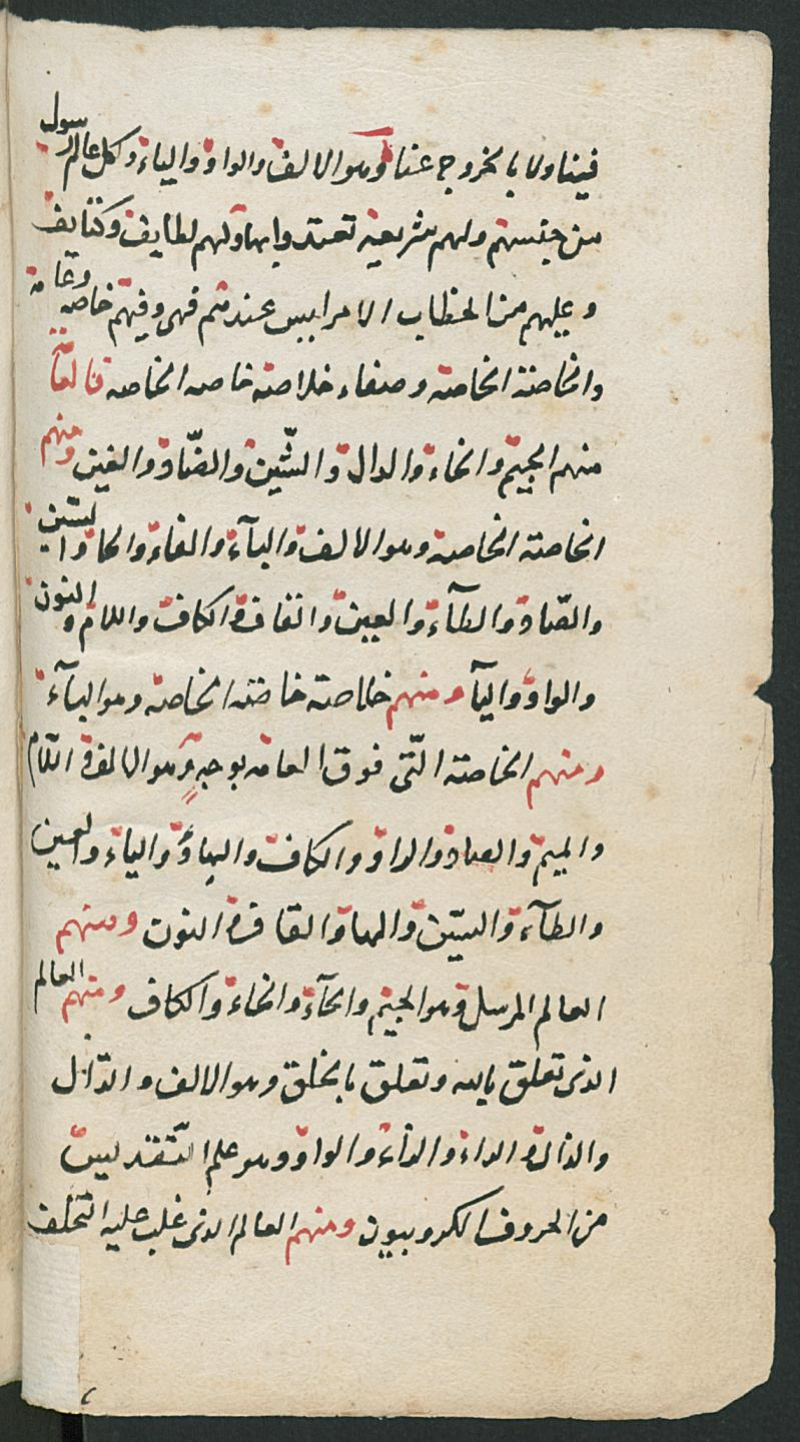 فينا ولا بالخروج عنا وهو الالف والواو والياء وكل عالم رسول
من جنسهم ولهم شريعة تعبدوا بها ولهم لطايف وكثايف
وعليهم من الخطاب الامر ليس عندهم نهى وفيهم خاصه وعامة
والخاصة الخاصة وصفاء خلاصة خاصه الخاصه فالعامة
منهم الجيم والخاء والدال والشّين والضّاد والغين ومنهم
الخاصة الخاصة وهو الالف والبآء والفاء والحا والسّين
والصّاد والطآء والعين والقاف والكاف واللام والنون
والواو واليآ ومنهم خلاصة خاصة الخاصة وهو البآء
ومنهم الخاصة الّتى فوق العامه بوجهٍ وهو الالف واللّام
والميم والصاد والراو والكاف والهاء والياء والعين
والطآء والسّين والها والقاف والنون ومنهم
العالم المرسل وهو الجيم والحآء والخاء والكاف ومنهم العالم
الذى تعلق بالله وتعلق بالخلق وهو الالف والدّال
والذال والراء والزاء والواو وهو علم التّقديس
من الحروف الكروبيون ومنهم العالم الذى غلب عليه التخلق